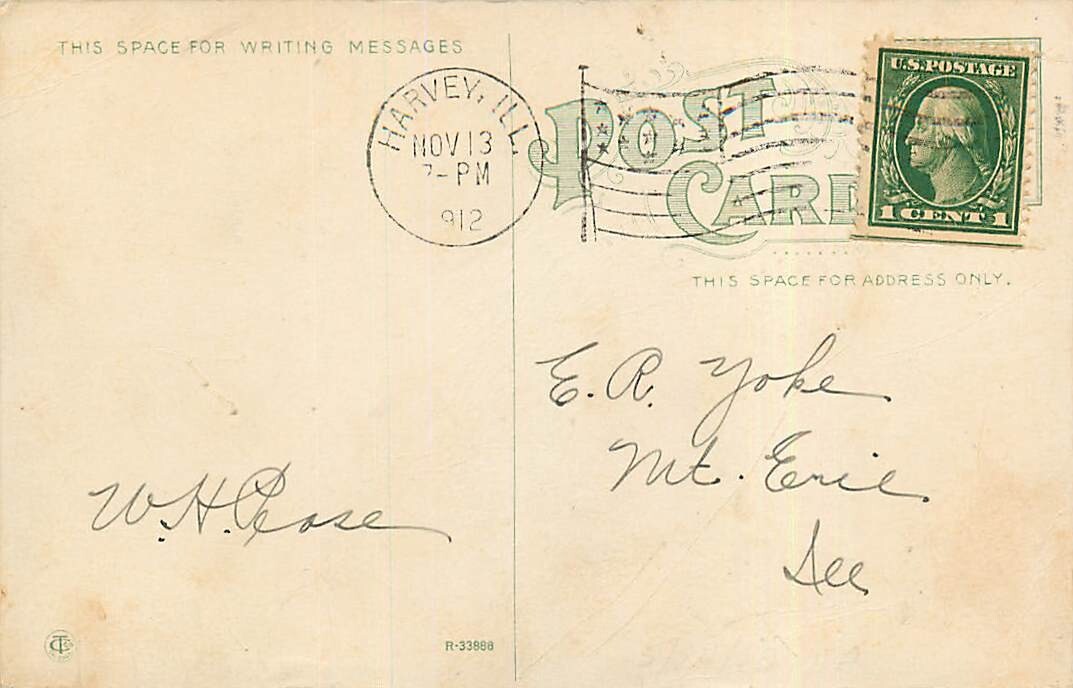 THIS SPACE FOR WRITING MESSAGES
HARVEY, ILL.
NOV 13
7-PM
1912
POST
CARD
U.S. POSTAGE
1 CENT 1
THIS SPACE FOR ADDRESS ONLY.
E. R. Yoke
Mt. Erie
Ill
W. H. Pease
R-33888